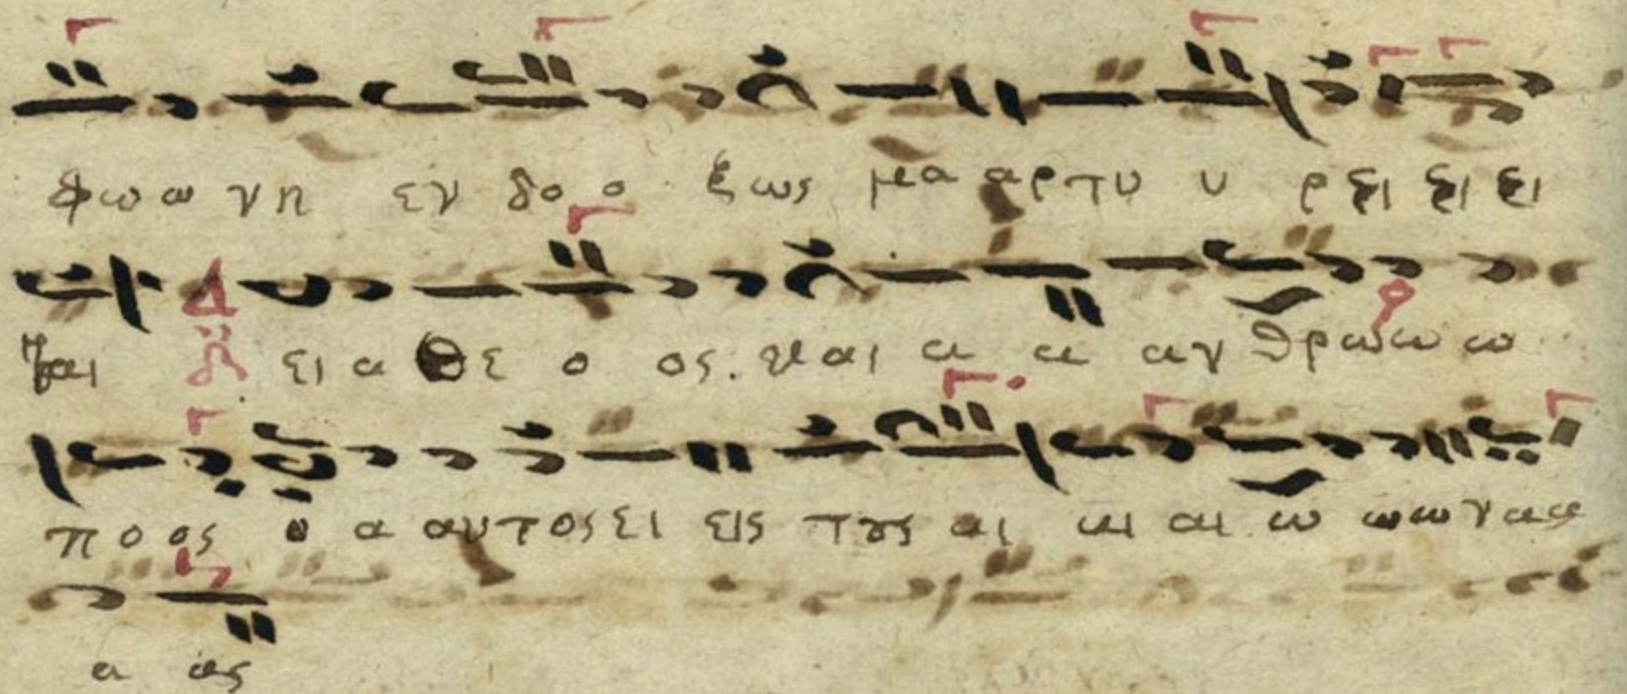 φω ω νη εν δο ο ξως μα α αρ τυ υ ρει ει ει
ται Δ ει α θε ο ος και α α αν θρω ω ω
πο ος ο α αυ τος ει εις τους αι αι αι ω ω ω να α α
α ας